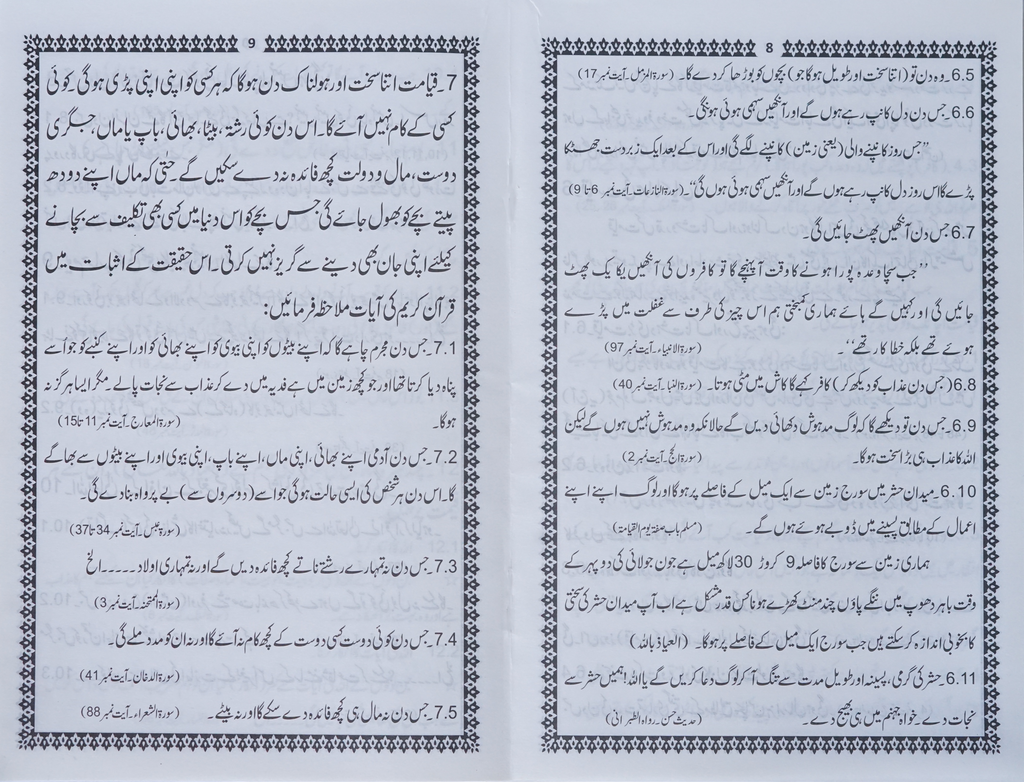 8
6.5۔وہ دن تو (اتنا سخت اور طویل ہوگا جو) بچوں کو بوڑھا کردے گا۔ (سورۃ المزمل۔آیت نمبر 17)
6.6۔جس دن دل کانپ رہے ہوں گے اور آنکھیں سہمی ہوئی ہونگی۔
”جس روز کانپنے والی (یعنی زمین) کانپنے لگے گی اور اس کے بعد ایک زبردست جھٹکا
پڑے گا اس روز دل کانپ رہے ہوں گے اور آنکھیں سہمی ہوئی ہوں گی“۔ (سورۃ النازعات۔ آیت نمبر 6 تا 9)
6.7 جس دن آنکھیں پھٹ جائیں گی
”جب سچا وعدہ پورا ہونے کا وقت آ پہنچے گا تو کافروں کی آنکھیں یکا یک پھٹ
جائیں گی اور کہیں گے ہائے ہماری کمبختی ہم اس چیز کی طرف سے غفلت میں پڑے
ہوئے تھے بلکہ خطا کار تھے“ (سورۃ الانبیاء۔آیت نمبر 97)
6.8 (جس دن عذاب کو دیکھ کر) کافر کہے گا کاش میں مٹی ہوتا۔ (سورۃ النباء۔آیت نمبر 40)
6.9۔جس دن تو دیکھے گا کہ لوگ مدہوش دکھائی دیں گے حالانکہ وہ مدہوش نہیں ہوں گے لیکن
اللہ کا عذاب ہی بڑا سخت ہوگا۔ (سورۃ الحج۔آیت نمبر 2)
6.10۔میدان حشر میں سورج زمین سے ایک میل کے فاصلے پر ہوگا اور لوگ اپنے اپنے
اعمال کے مطابق پسینے میں ڈوبے ہوئے ہوں گے۔ (مسلم باب صفتہ یوم القیامۃ)
ہماری زمین سے سورج کا فاصلہ 9 کروڑ 30 لاکھ میل ہے جون جولائی کی دوپہر کے
وقت باہر دھوپ میں ننگے پاؤں چند منٹ کھڑے ہونا کس قدر مشکل ہے اب آپ میدان حشر کی سختی
کا بخوبی اندازہ کرسکتے ہیں جب سورج ایک میل کے فاصلے پر ہوگا۔ (العیاذ باللہ)
6.11۔حشر کی گرمی، پسینہ اور طویل مدت سے تنگ آکر لوگ دعا کریں گے یا اللہ! ہمیں حشر سے
نجات دے خواہ جہنم میں ہی بھیج دے۔ (حدیث حسن رواہ الطبرانی)
9
7۔قیامت اتنا سخت اور ہولناک دن ہوگا کہ ہر کسی کو اپنی اپنی پڑی ہوگی۔کوئی
کسی کے کام نہیں آئے گا۔اس دن کوئی رشتہ، بیٹا، بھائی، باپ یا ماں، جگری
دوست، مال و دولت کچھ فائدہ نہ دے سکیں گے۔حتٰی کہ ماں اپنے دودھ
پیتے بچے کو بھول جائے گی جس بچے کو اس دنیا میں کسی بھی تکلیف سے بچانے
کیلئے اپنی جان بھی دینے سے گریز نہیں کرتی۔اس حقیقت کے اثبات میں
قرآن کریم کی آیات ملاحظہ فرمائیں:
7.1۔جس دن مجرم چاہے گا کہ اپنے بیٹوں کو اپنی بیوی کو اپنے بھائی کو اور اپنے کنبے کو جو اسے
پناہ دیا کرتا تھا اور جو کچھ زمین میں ہے فدیہ میں دے کر عذاب سے نجات پالے۔مگر ایسا ہرگز نہ
ہوگا۔ (سورۃ المعارج۔آیت نمبر 11 تا 15)
7.2۔جس دن آدمی اپنے بھائی، اپنی ماں، اپنے باپ، اپنی بیوی اور اپنے بیٹوں سے بھاگے
گا۔اس دن ہر شخص کی ایسی حالت ہوگی جو اسے (دوسروں سے) بے پرواہ بنادے گی۔
(سورۃ عبس۔آیت نمبر 34 تا 37)
7.3۔جس دن نہ تمہارے رشتے ناتے کچھ فائدہ دیں گے اور نہ تمہاری اولاد۔۔۔۔الخ
(سورۃ الممتحنہ۔آیت نمبر 3)
7.4۔جس دن کوئی دوست کسی دوست کے کچھ کام نہ آئے گا اور نہ ان کو مدد ملے گی۔
(سورۃ الدخان۔آیت نمبر 41)
7.5۔جس دن نہ مال ہی کچھ فائدہ دے سکے گا اور نہ بیٹے۔ (سورۃ الشعراء۔آیت نمبر 88)